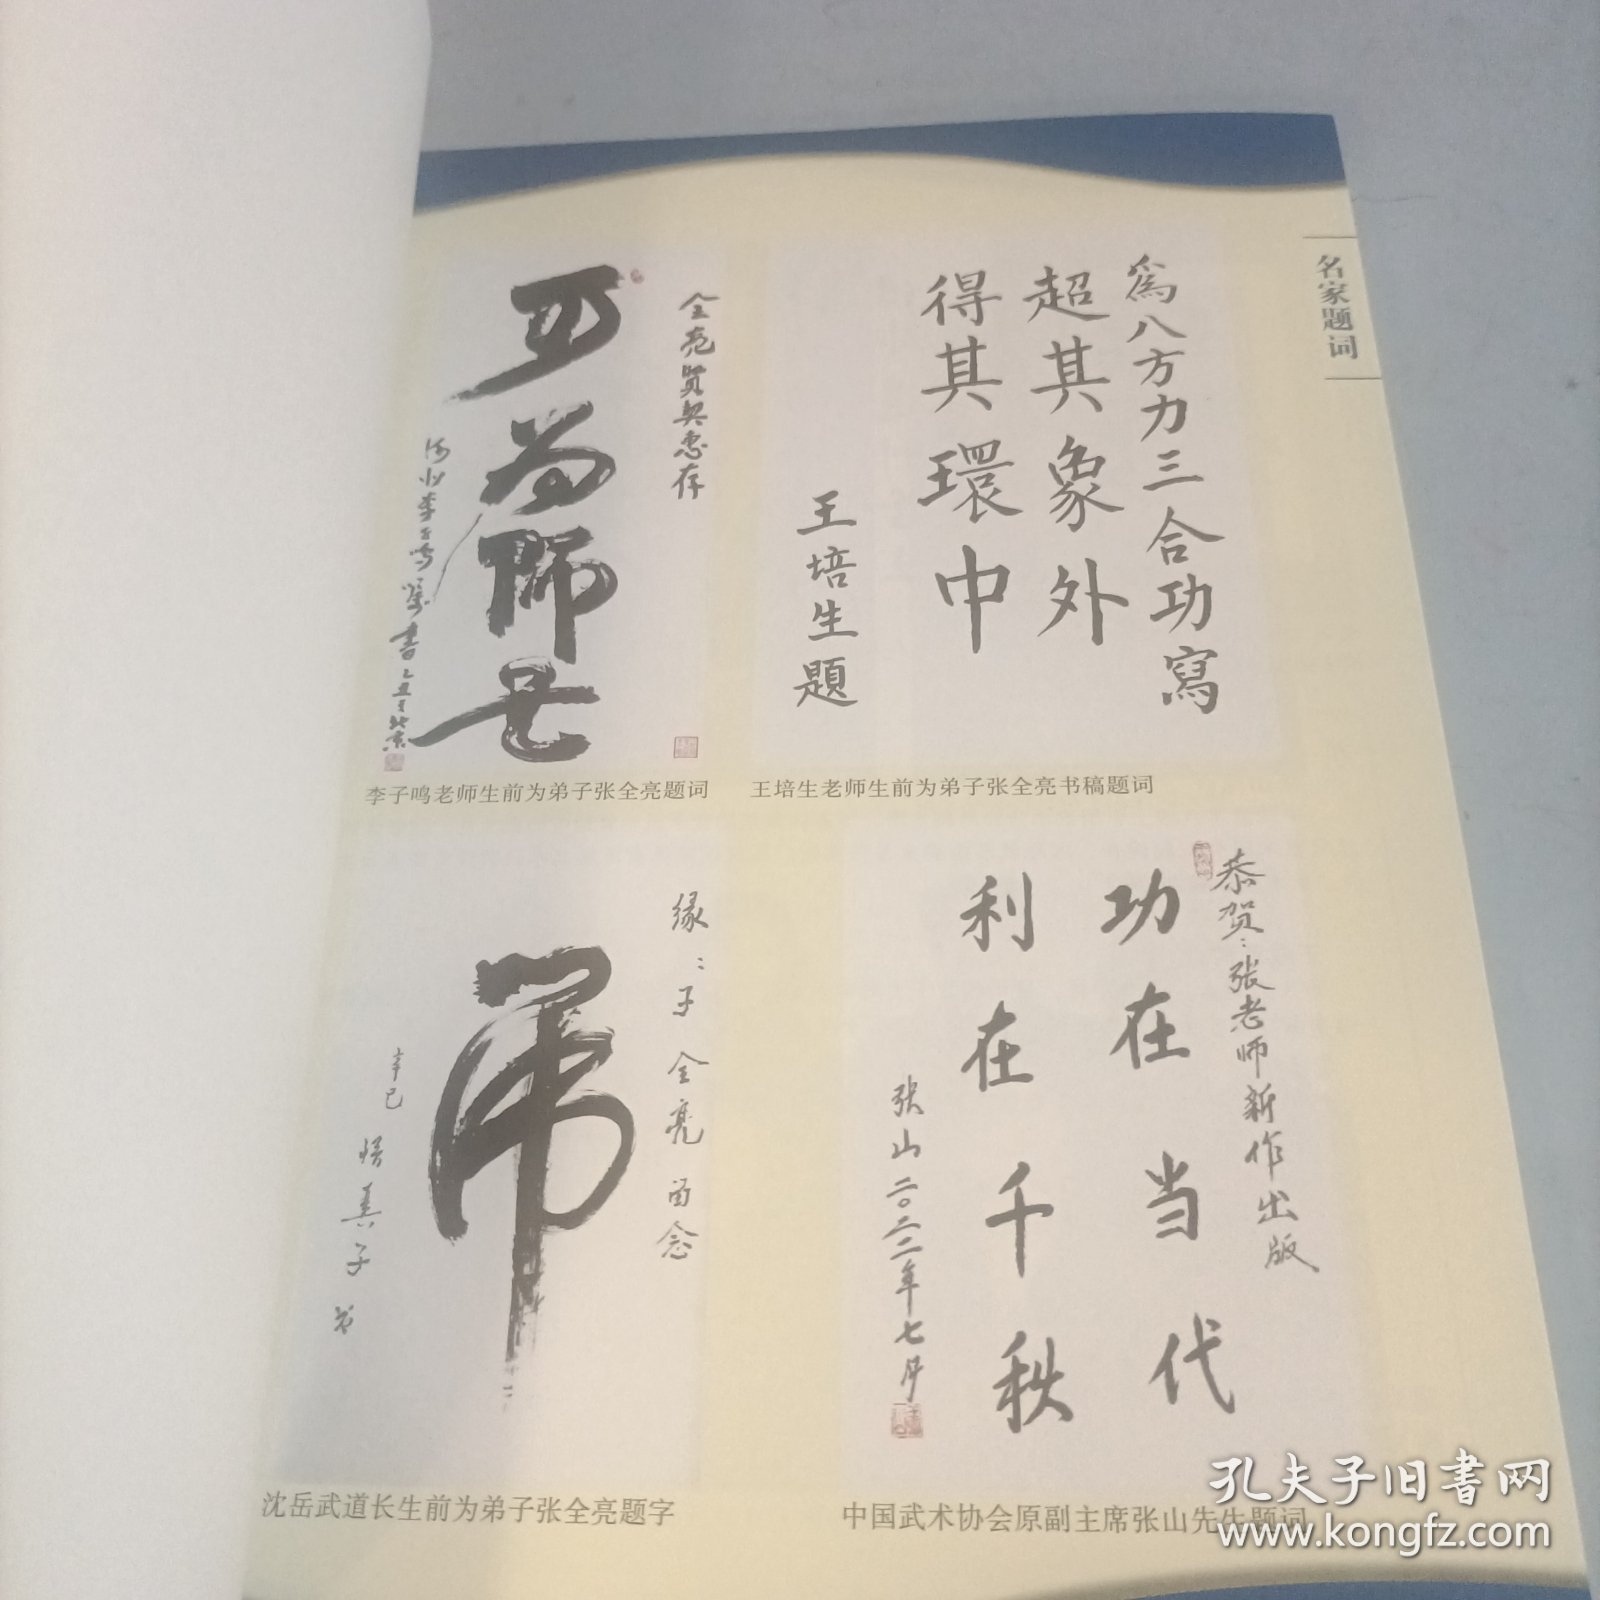 名家题词
全亮贤契惠存
可为师安
河北李子鸣 书
李子鸣老师生前为弟子张全亮题词
为八方力三合功寫
超其象外
得其環中
王培生題
王培生老师生前为弟子张全亮书稿题词
缘:子全亮留念
辛巳
悟真子
沈岳武道长生前为弟子张全亮题字
恭贺:张老师新作出版
功在当代
利在千秩
张山二〇二二年七月
中国武术协会原副主席张山先生题词
孔夫子旧书网
www.kongfz.com